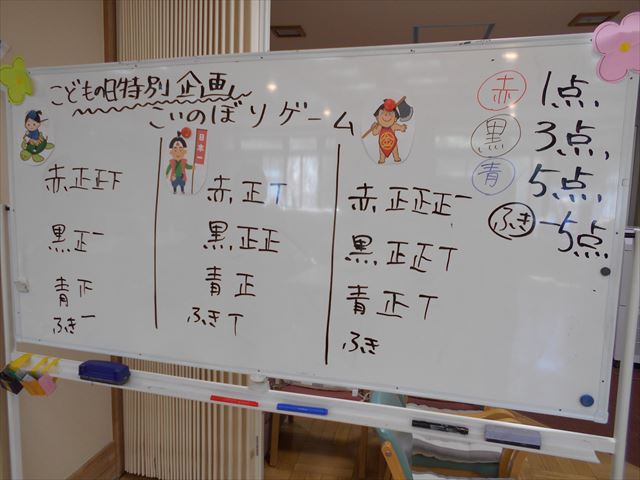 こどもの日特別企画
こいのぼりゲーム
日本一
赤正正下
黒正一
青正
ふき一
赤正T
黒正正
青正
ふきT
赤正正正一
黒正正T
青正T
ふき
赤 1点
黒 3点
青 5点
ふき -5点